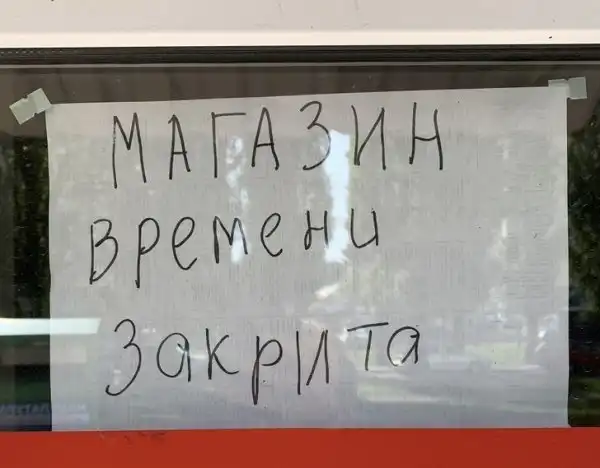 МАГАЗИН
времени
Закрита